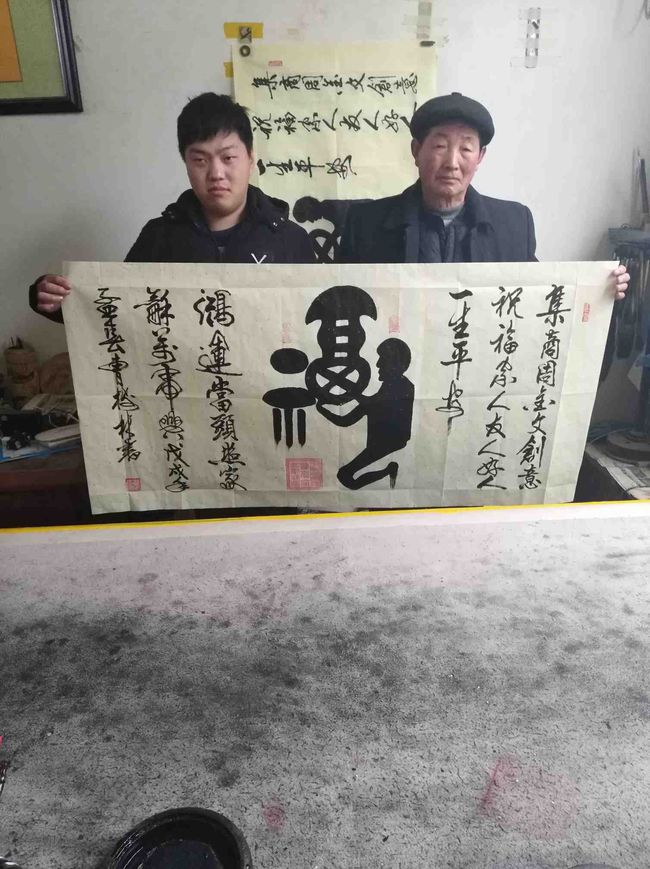 集商周金文創意
祝福家人友人好人
一生平安
集商周金文創意
祝福家人友人好人
一生平安
鴻運當頭照家
萬事興戊戌年